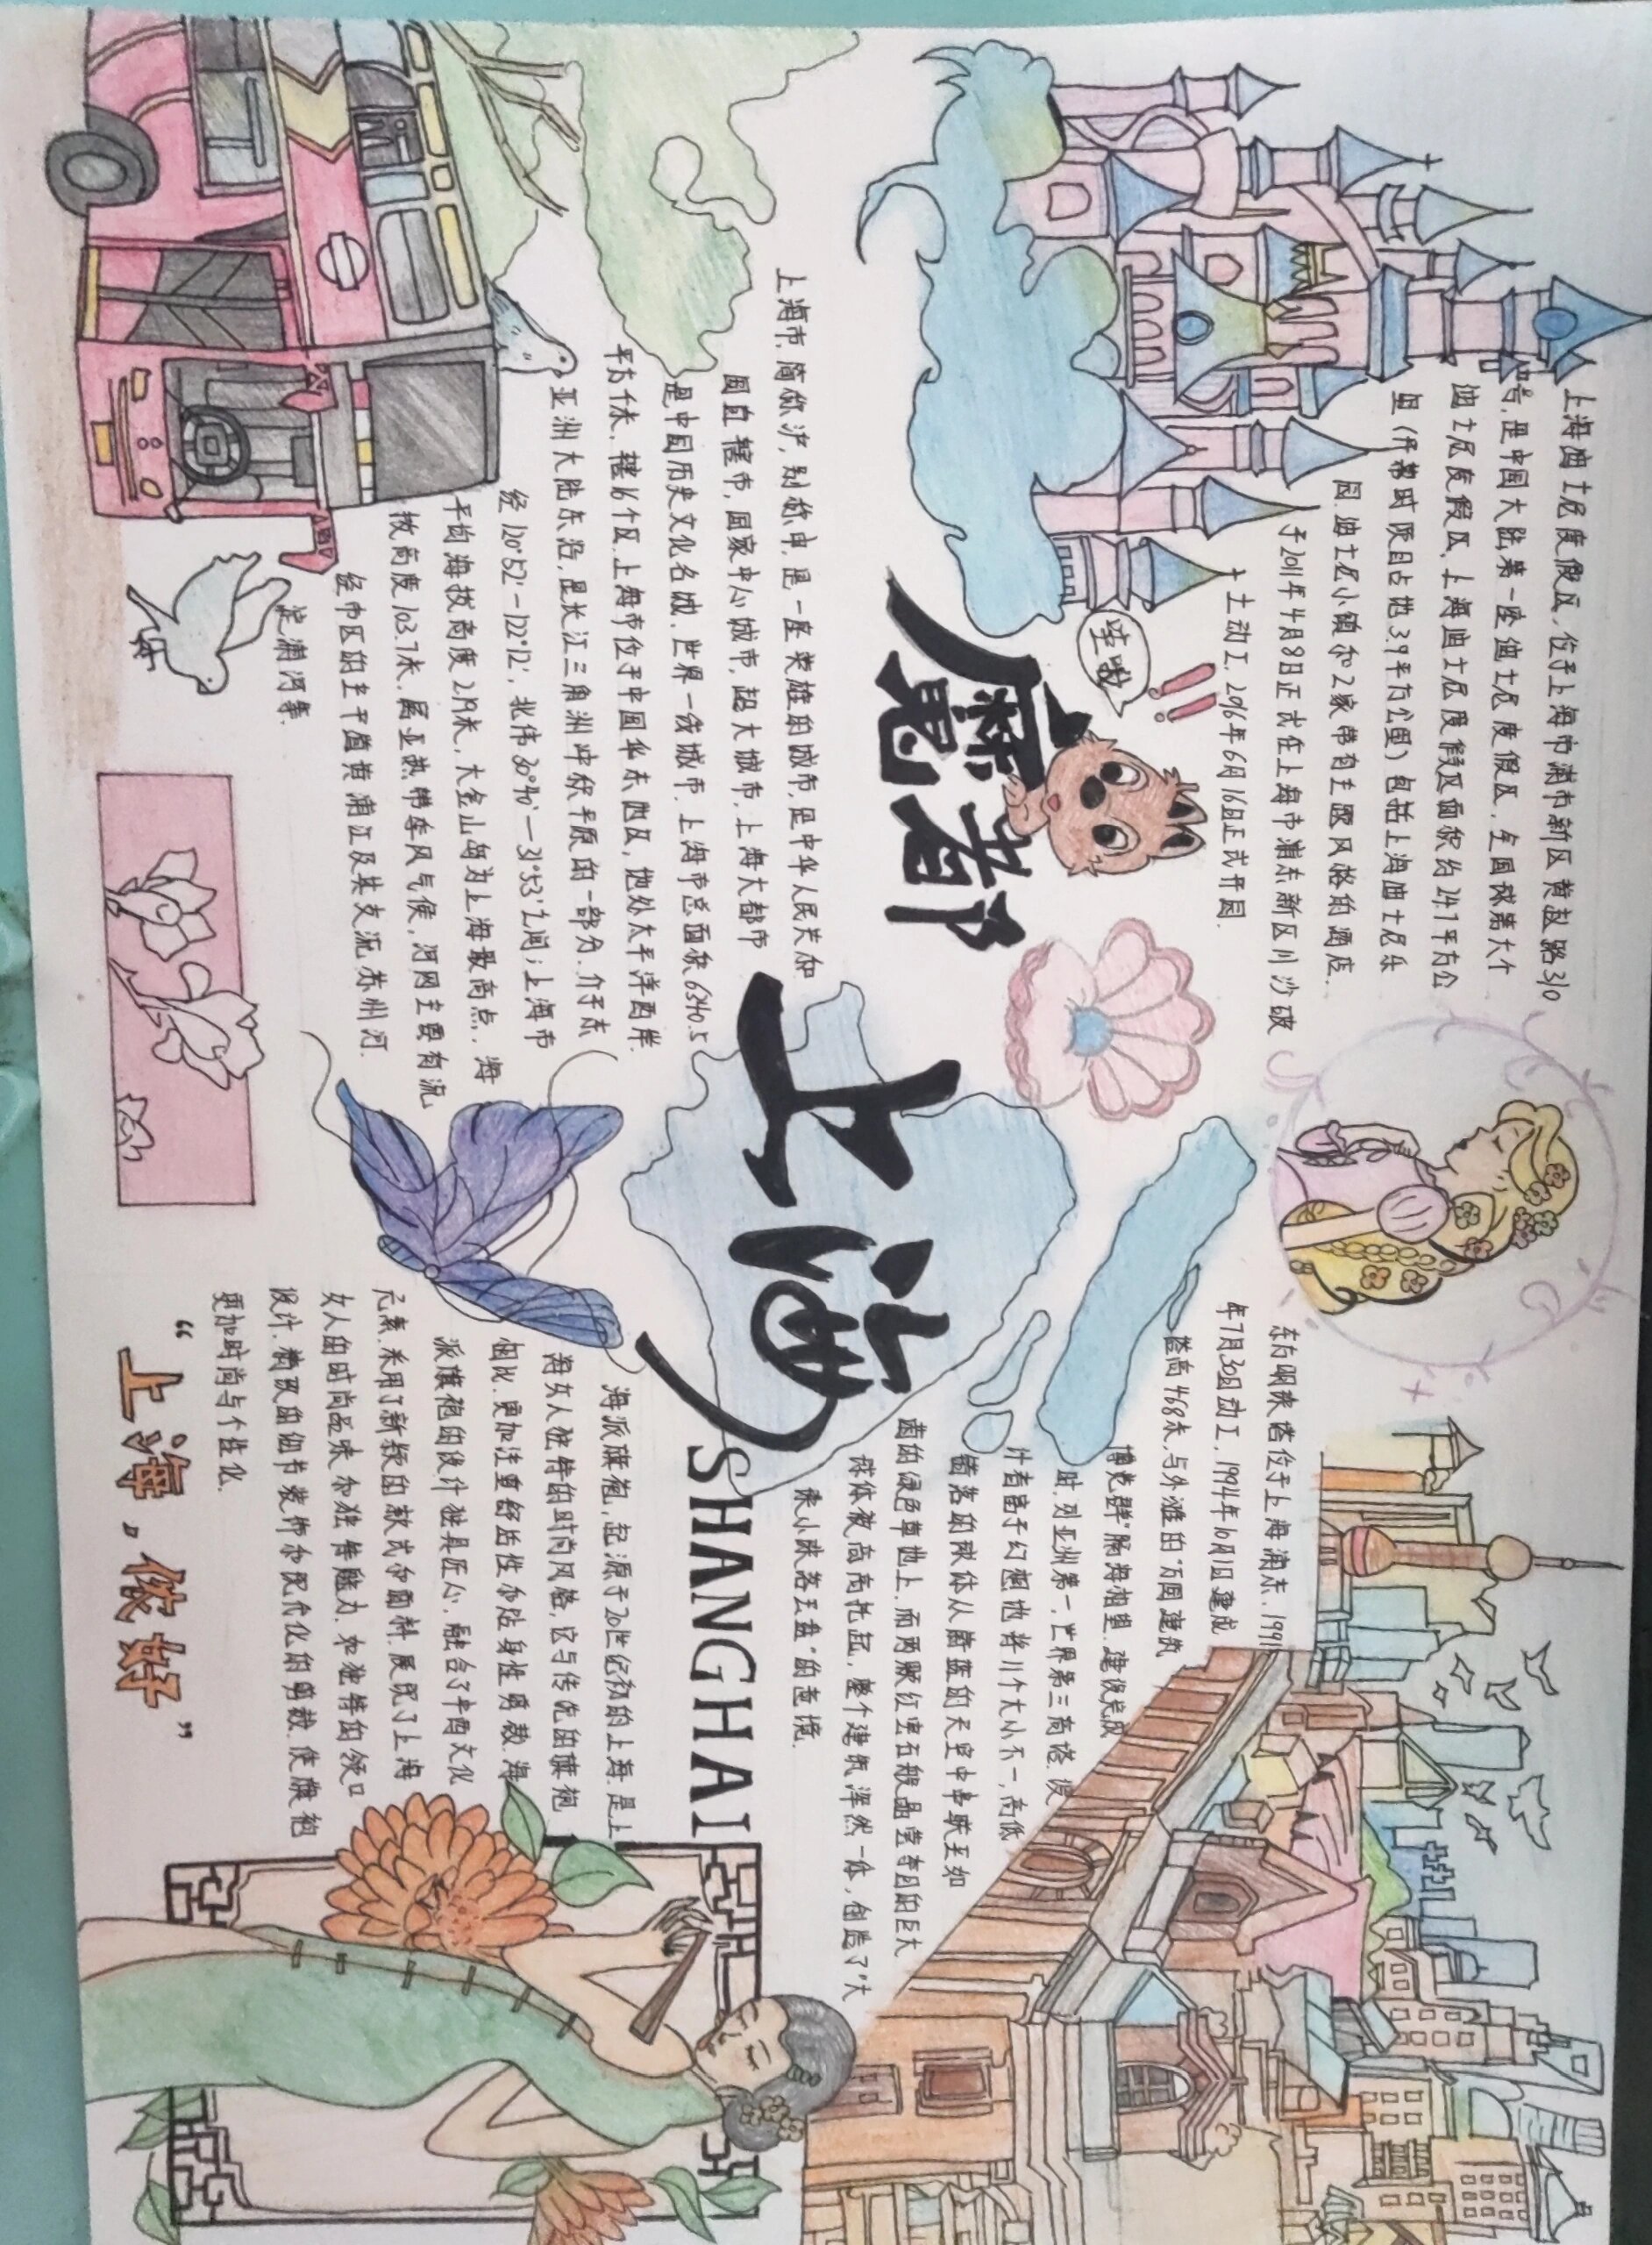 上海迪士尼度假区,位于上海市浦市新区黄赵路310
号,是中国大陆第一座迪士尼度假区,全国球第六个
迪士尼度假区,上海迪士尼度假区面积约24.7平方公
里(开幕时项目占地3.9平方公里)包括上海迪士尼乐
园.迪士尼小镇和2家带有主题风格的酒店.
于2011年4月8日正式在上海市浦东新区川沙破
土动工,2016年6月16日正式开园.
哇哦
!!
魔都
上海
SHANGHAI
上海市,简称沪,别称申,是一座英雄的城市,是中华人民共和
国直辖市,国家中心城市,超大城市,上海大都市
是中国历史文化名城,世界一线城市.上海市总面积6340.5
平方千米,辖16个区.上海市位于中国华东地区,地处太平洋西岸.
亚洲大陆东沿,是长江三角洲冲积平原的一部分.介于东
经120°52′—122°12′,北伟30°40′—31°53′之间;上海市
平均海拔高度2.19米,大金山每为上海最高点,海
拔高度103.7米.属亚热带季风气候,河网主要有流
经市区的主干道黄浦江及其支流苏州河.
淀浦河等.
东方明珠塔位于上海浦东,1991
年7月30日动工,1994年10月1日建成
塔高468米,与外滩的"万国建筑
博览群"隔海相望.建设完成
时,列亚洲第一,世界第三高塔.设
计者富于幻想地将11个大小不一,高低
错落的球体从蔚蓝的天空中串联至如
茵的绿色草地上,而两颗红宝石般晶莹夺目的巨大
球体被高高托起,整个建筑浑然一体,创造了"大
珠小珠落玉盘"的意境.
海派旗袍,起源于20世纪初的上海.是上
海女人独特的时尚风格,它与传统的旗袍
相比.更加注重舒适性和贴身性剪裁.海
派旗袍的设计独具匠心,融合了中西文化
元素.采用了新颖的款式和面料.展现了上海
女人的时尚品味和独特魅力.和独特的领口
设计.精致的细节装饰和现代化的剪裁.使旗袍
更加时尚与个性化.
“上海,侬好”